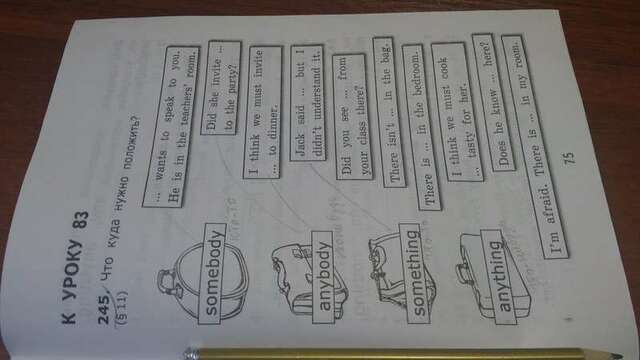 К УРОКУ 83
245. Что куда нужно положить?
(§ 11)
somebody
anybody
something
anything
... wants to speak to you.
He is in the teachers' room.
Did she invite ...
to the party?
I think we must invite
... to dinner.
Jack said ... but I
didn't understand it.
Did you see ... from
your class there?
There isn't ... in the bag.
There is ... in the bedroom.
I think we must cook
... tasty for her.
Does he know ... here?
I'm afraid. There is ... in my room.
75